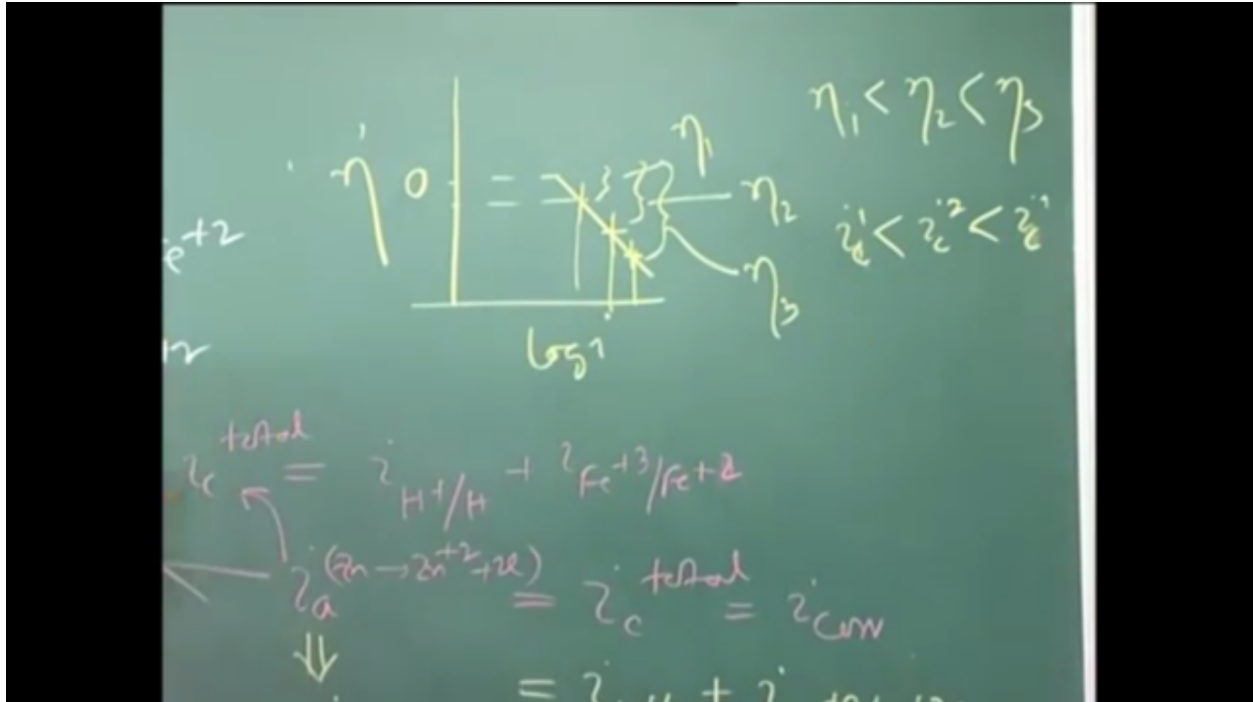 η₁ < η₂ < η₃
η₁
η 0
η₂
i_c¹ < i_c² < i_c
e⁺²
η₃
log i
+2
i_c^total = i_H⁺/H + i_Fe⁺³/Fe⁺²
i_a^(Zn → Zn⁺² + 2e) = i_c^total = i_corr
⇓
= i